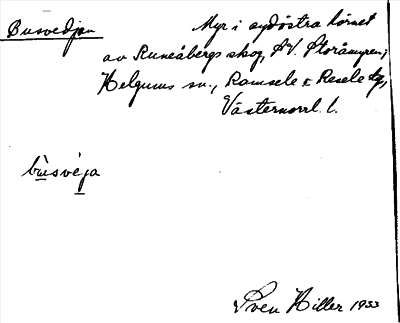 Busvedjan
Myr i sydöstra hörnet
av Runeåbergs skog, SV. Storåmyren,
Helgums sn., Ramsele & Resele tg,
Västernorrl. l.
bùsvèja
Sven Hiller 1933